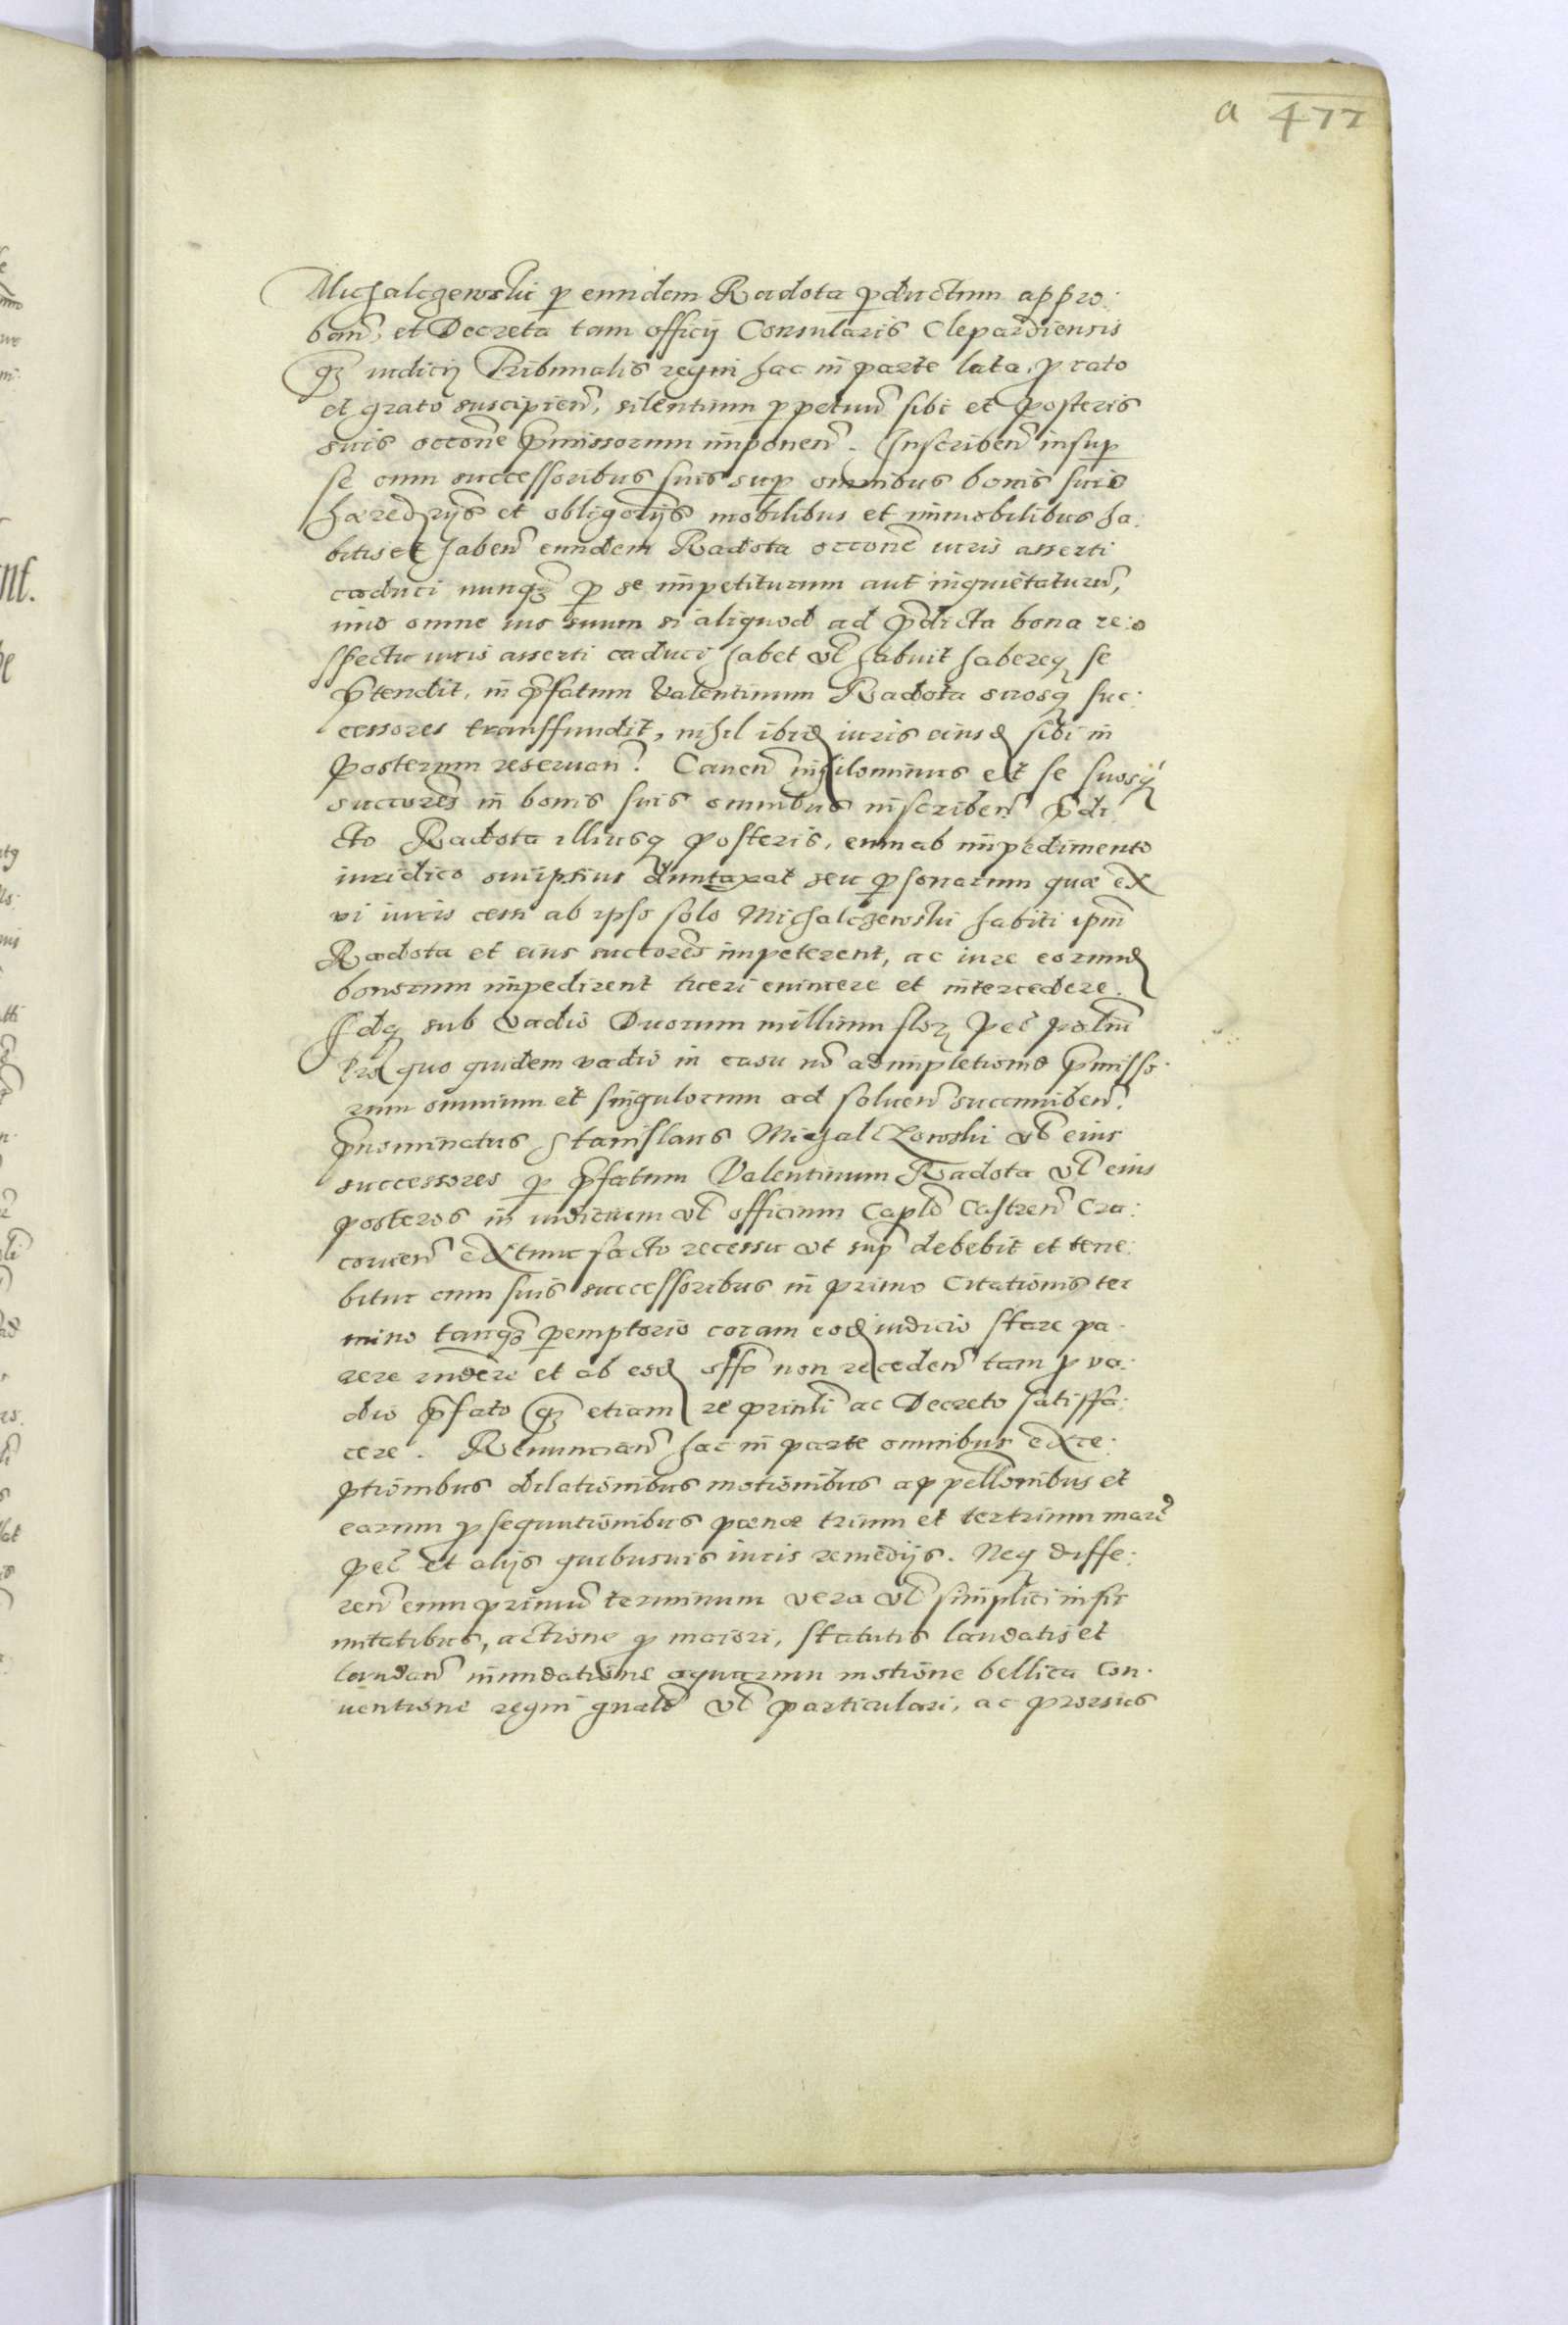 a 477
Michalczewski p eundem Radota pductum appro:
ban̄, et Decreta tam officij Consularis Clepardiensis
q̃ iudicij Tribunalis regni hac in parte lata, p rato
et grato suscipien̄, silentium ppetuū sibi et posteris
suis occōne p̄missorum imponen̄. Inscriben̄ insup
se cum successoribus suis sup omnibus bonis suis
hæredrijs et obligorijs mobilibus et immobilibus ha:
bitis et haben̄ eundem Radota occōne iuris asserti
caduci nunq̃ p se impetiturum aut inquietaturū,
imo omne ius suum si aliquod ad p̄dicta bona re:
spectu iuris asserti caduci habet vl̄ habuit habereq se
p̄tendit, in p̄fatum Valentinum Radota suosq suc:
cessores transffundit, nihil ibid iuris eiusd sibi in
posterum reseruan̄. Cauen̄ nihilominus et se suosq
succores in bonis suis omnibus inscriben̄ p̄di
cto Radota illiusq posteris, eum ab impedimento
iuridico suiipsius duntaxat seu psonarum quæ ex
vi iuris cessi ab ipso solo Michalczewski habiti ipm̄
Radota et eius succores impeterent, ac iure eorund
bonorum impedirent tueri euincere et intercedere.
Idq sub vadio Duorum millium flor pec̄ polnī
Pro quo quidem vadio in casu nō adimpletionis p̄misso:
rum omnium et singulorum ad soluen̄ succumben̄.
p̄nominatus Stanislaus Michalczowski vl̄ eius
successores p p̄fatum Valentinum Radota vl̄ eius
posteros in iudicium vl̄ officium Caplē Castren̄ Cra:
couien̄ extunc facto recessu vt sup̄ debebit et tene:
bitur cum suis successoribus in primo Citationis ter
mino tanq̃ pemptorio coram eod iudicio stare pa:
rere rndere et ab eod offo non receden̄ tam p va:
dio p̄fato q̃ etiam re prinlī ac Decreto satisfa:
cere. Renuncian̄ hac in parte omnibus exce:
ptionibus dilationibus motionibus appellonibus et
earum psequutionibus poenæ trium et tertrium marc̄
pec̄ et alijs quibusuis iuris remedijs. Neq diffe:
ren̄ eum primū terminum vera vl̄ simplici infir
mitatibus, actione p maiori, statutis laudatis et
laudan̄ inundatione aquarum motione bellica Con:
uentione regni gnalē vl̄ particulari, ac prorsus